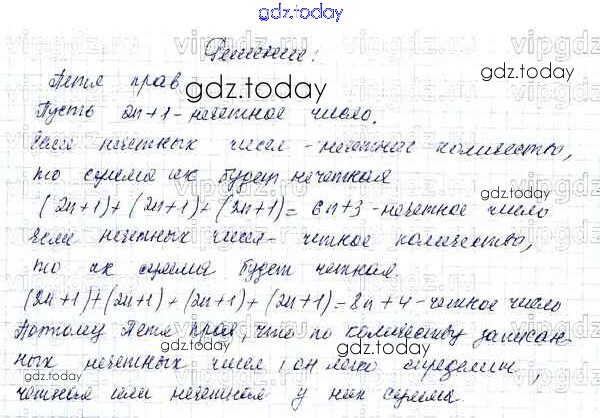 gdz.today
Решение:
Петя прав
gdz.today
Пусть 2n+1 - нечетное число.
Если нечетных чисел - нечетное количество,
то сумма их будет нечетная
gdz.today
(2n+1)+(2n+1)+(2n+1)=6n+3 - нечетное число
Если нечетных чисел - четное количество,
то их сумма будет четная.
gdz.today
(2n+1)+(2n+1)+(2n+1)+(2n+1)=8n+4 - четное число
Поэтому Петя прав, что по количеству записан-
ных нечетных чисел, он легко определит,
gdz.today
gdz.today
четная или нечетная у них сумма.